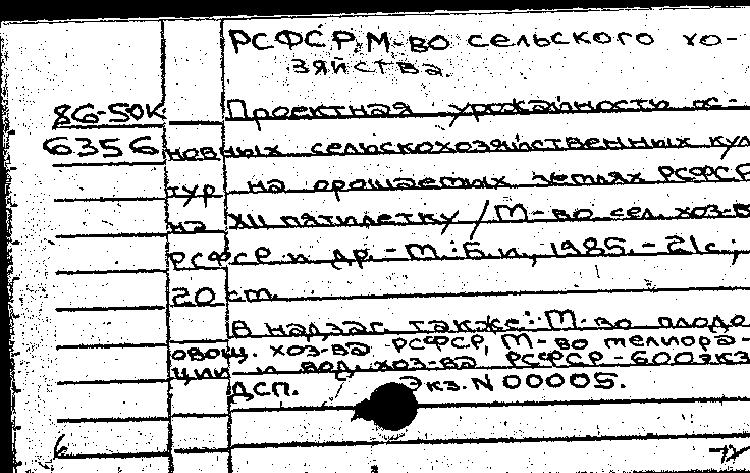 РСФСР. М-во сельского хо-
зяйства.
86-50К
Проектная урожайность ос-
6356
новных сельскохозяйственных куль
тур на орошаемых землях РСФСР
на XII пятилетку / М-во сел. хоз-ва
РСФСР и др. - М.: Б.и., 1985. - 21 с.;
20 см.
В надзаг. также: М-во плодо
овощ. хоз-ва РСФСР, М-во мелиора-
ции и вод. хоз-ва РСФСР. - 600 экз
ДСП. Экз. N 00005.
6